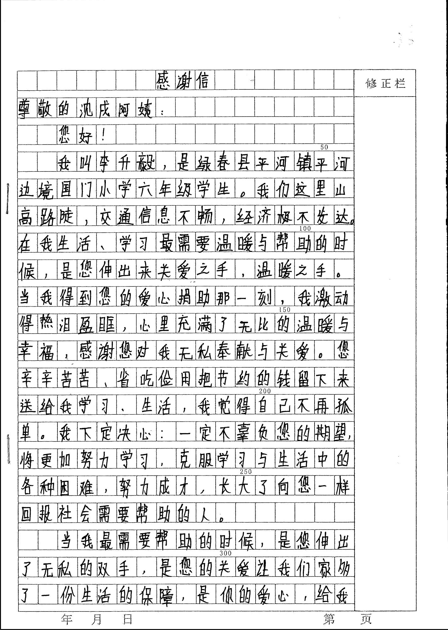 感谢信
修正栏
尊敬的沈戍阿姨：
您好！
50
我叫李升毅，是绿春县平河镇平河
边境国门小学六年级学生。我们这里山
高路陡，交通信息不畅，经济极不发达。
100
在我生活、学习最需要温暖与帮助的时
候，是您伸出来关爱之手，温暖之手。
当我得到您的爱心捐助那一刻，我激动
150
得热泪盈眶，心里充满了无比的温暖与
幸福，感谢您对我无私奉献与关爱。您
辛辛苦苦、省吃俭用把节约的钱留下来
200
送给我学习、生活，我觉得自己不再孤
单。我下定决心：一定不辜负您的期望，
将更加努力学习，克服学习与生活中的
250
各种困难，努力成才，长大了向您一样
回报社会需要帮助的人。
当我最需要帮助的时候，是您伸出
300
了无私的双手，是您的关爱让我们家多
了一份生活的保障，是你的爱心，给我
年 月 日 第 页